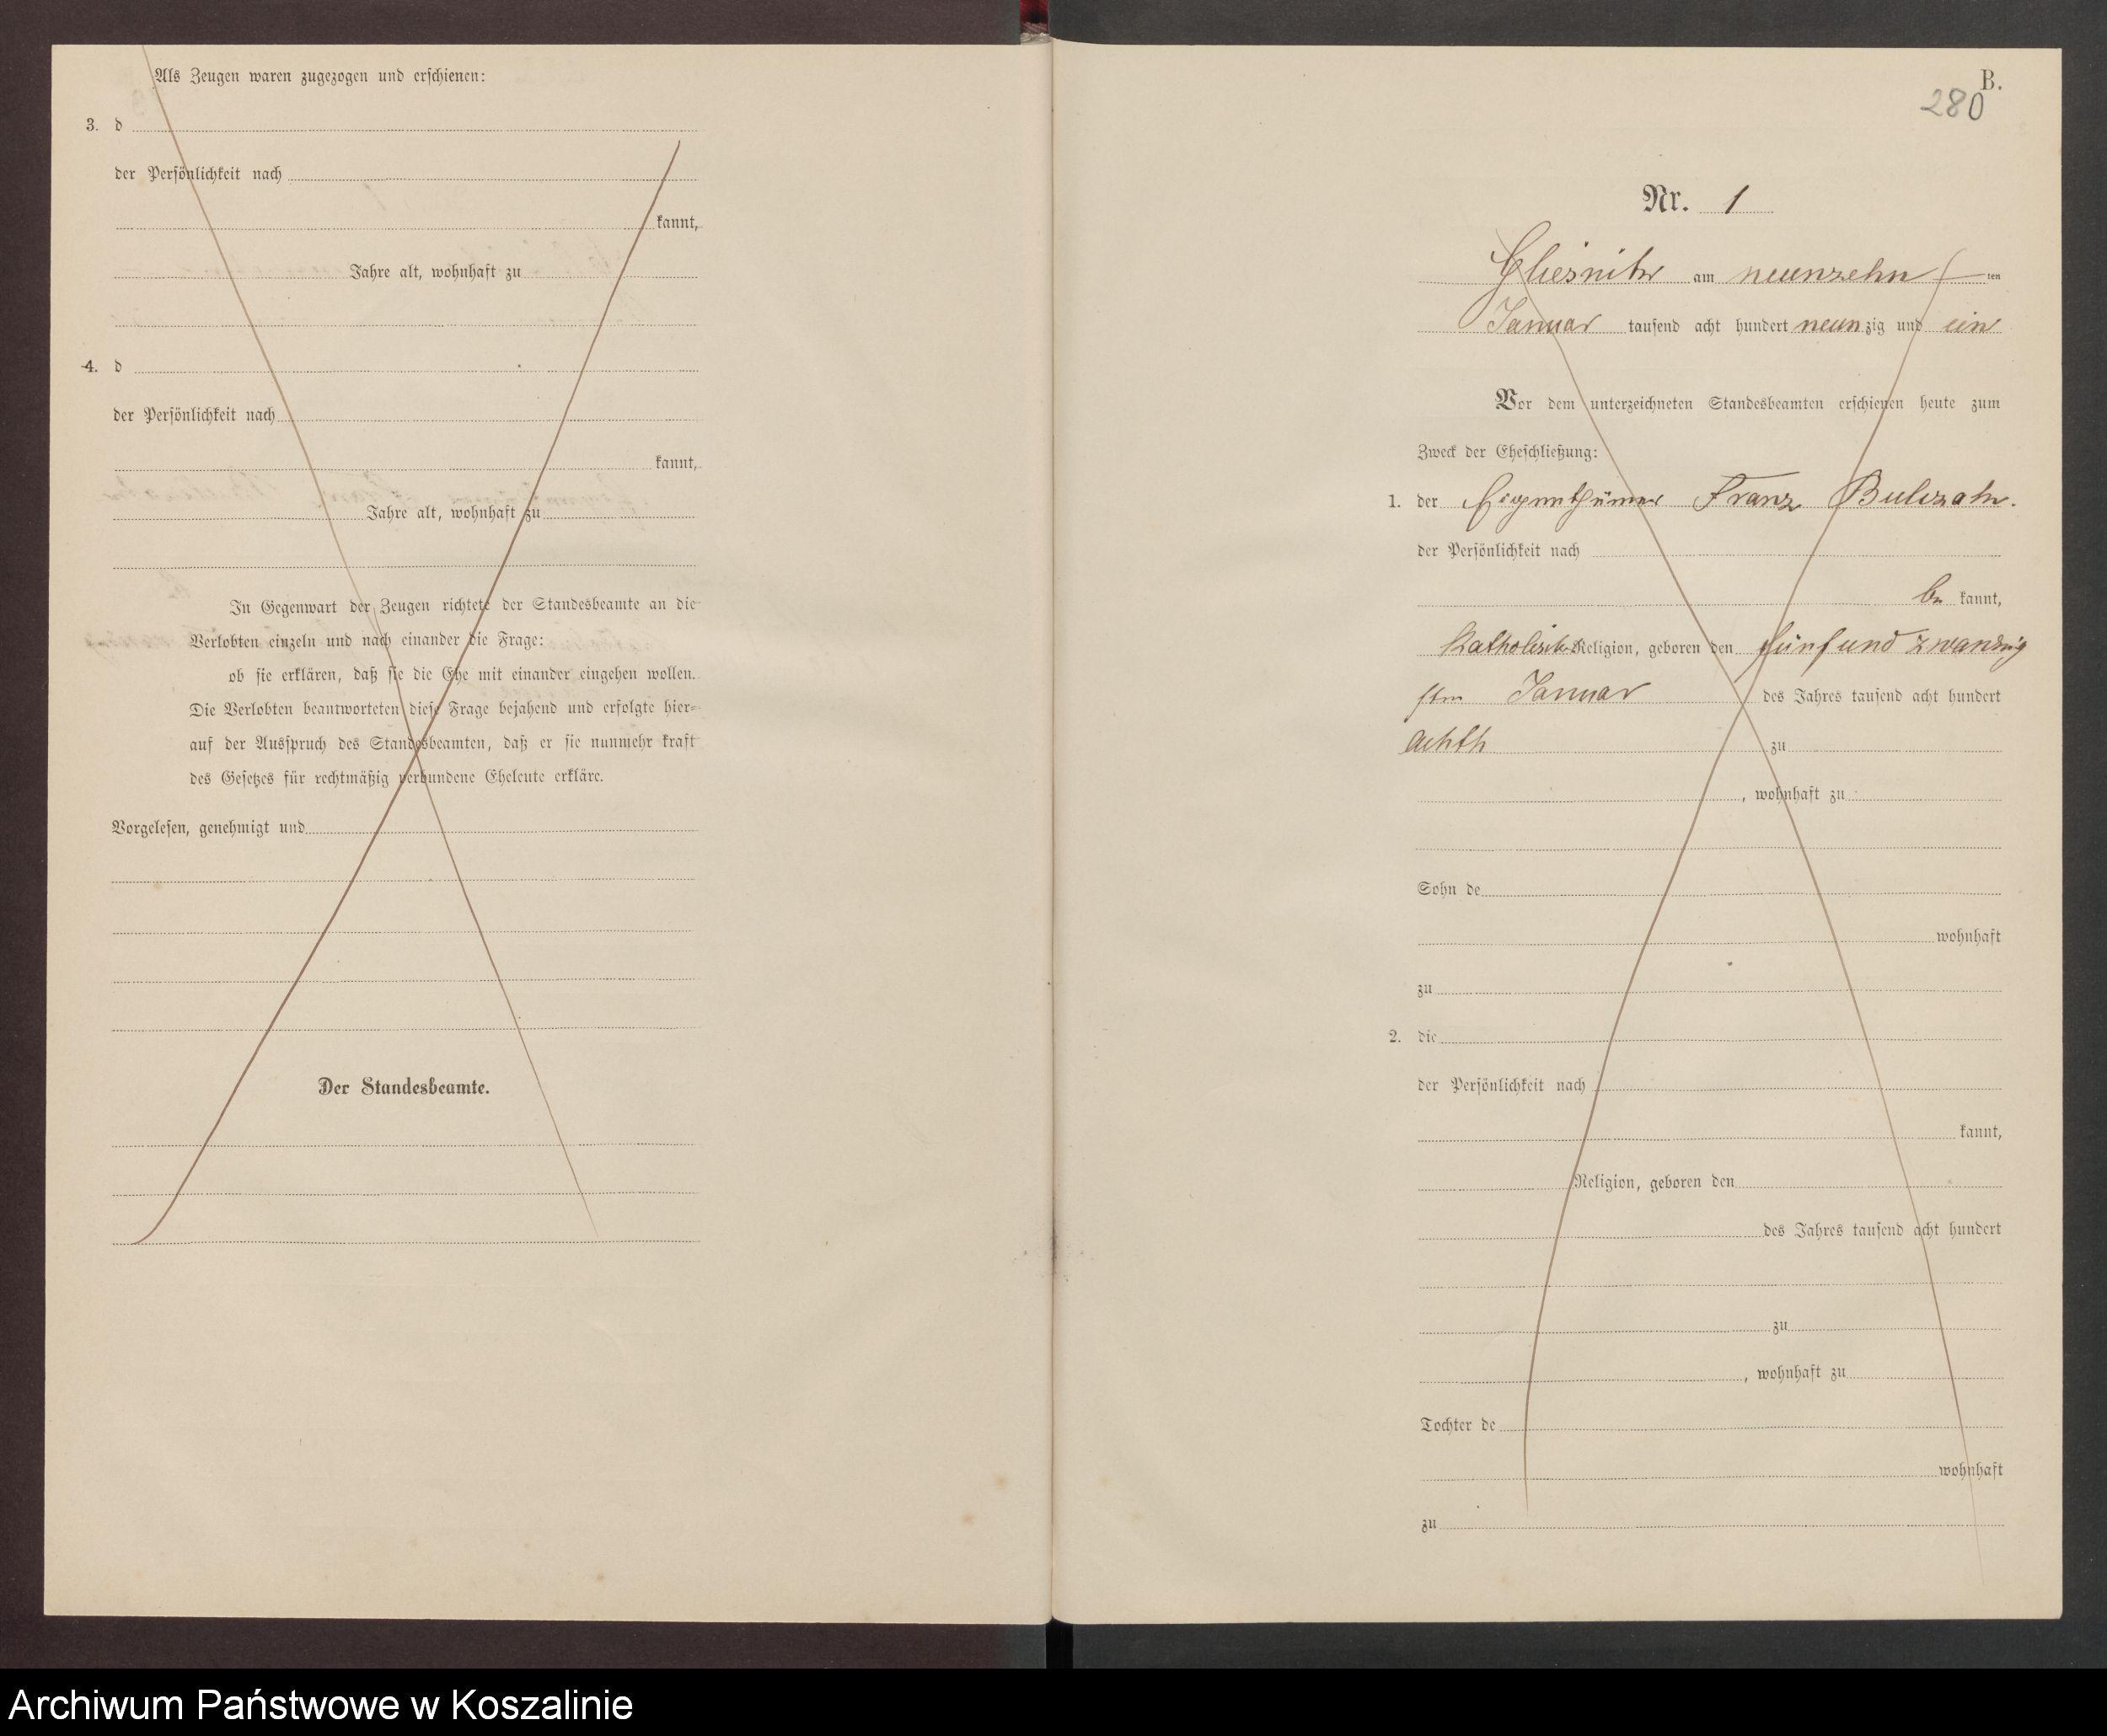 Als Zeugen waren zugezogen und erschienen:
3. d
der Persönlichkeit nach
kannt,
Jahre alt, wohnhaft zu
4. d
der Persönlichkeit nach
kannt,
Jahre alt, wohnhaft zu
In Gegenwart der Zeugen richtete der Standesbeamte an die
Verlobten einzeln und nach einander die Frage:
ob sie erklären, daß sie die Ehe mit einander eingehen wollen.
Die Verlobten beantworteten diese Frage bejahend und erfolgte hier-
auf der Ausspruch des Standesbeamten, daß er sie nunmehr kraft
des Gesetzes für rechtmäßig verbundene Eheleute erkläre.
Vorgelesen, genehmigt und
Der Standesbeamte.
B.
280
Nr. 1
am neunzehn ten
Januar tausend acht hundert neunzig und ein
Vor dem unterzeichneten Standesbeamten erschienen heute zum
Zweck der Eheschließung:
1. der Eigenthümer Franz
der Persönlichkeit nach
be kannt,
Religion, geboren den fünf und zwanzig
sten Januar des Jahres tausend acht hundert
zu
, wohnhaft zu
Sohn de
wohnhaft
zu
2. die
der Persönlichkeit nach
kannt,
Religion, geboren den
des Jahres tausend acht hundert
zu
, wohnhaft zu
Tochter de
wohnhaft
zu
Archiwum Państwowe w Koszalinie